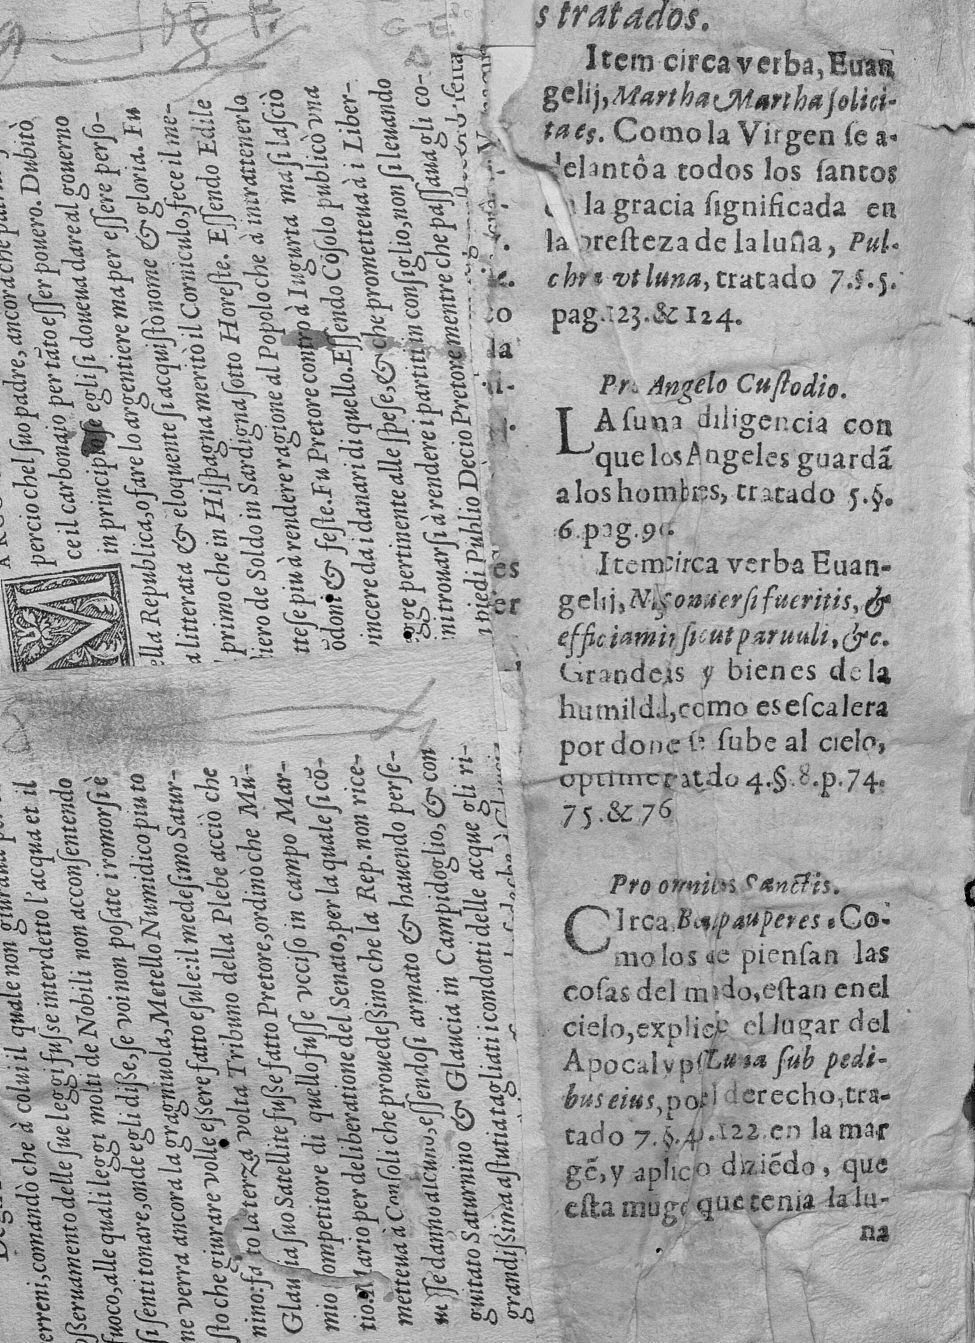 s tratados.
Item circa verba, Euan
gelij, Martha Martha ſolici-
taes. Como la Virgen ſe a-
delantô a todos los ſantos
en la gracia ſignificada en
la preſteza de la luña, Pul-
chra vt luna, tratado 7.§.5.
pag.123.& 124.
Pro Angelo Cuſtodio.
LA ſuma diligencia con
que los Angeles guardã
a los hombres, tratado 5.§.
6.pag.96.
Item circa verba Euan-
gelij, Niſi conuerſi fueritis, &
efficiamini ſicut paruuli, &c.
Grandezas y bienes de la
humildad, como es eſcalera
por donde ſe ſube al cielo,
4.§.8.p.74.
75.& 76
Pro omnibus Sanctis.
CIrca Beati pauperes. Co-
mo los que pienſan las
coſas del mũdo, eſtan en el
cielo, explicaſe el lugar del
Apocalypſ. Luna ſub pedi-
bus eius, por el derecho, tra-
tado 7.§.4.122.en la mar
gẽ, y aplico diziẽdo, que
eſta muger que tenia la lu-
na
percio che l ſuo padre, ancora che
ce il carbonaio per tãto eſſer pouero. Dubitò
in principio ſe egli ſi doueua dare al gouerno
ella Republica, o fare lo argentiere ma per eſſere perſo-
a litterata & eloquente ſi acquiſto nome & gloria. Fu
primo che in Hiſpagna meritò il Corniculo, fece il me-
ſiero de Soldo in Sardigna ſotto Horeſte. Eſſendo Edile
tteſe più à rendere ragione al Popolo che à intrattenerlo
õdoni & feſte. Fu Pretore contro à Iugurta ma ſi laſciò
vincere da i danari di quello. Eſſendo Cõſolo publicò vna
gge pertinente alle ſpeſe, & che prometteua à i Liber-
mi trouarſi à rendere i partiti in conſiglio, non ſi leuando
i piedi Publio Decio Pretore mentre che paſſaua gli co-
erreni, comandò che à colui il quale non giuraua
oſſeruamento delle ſue leggi fuſſe interdetto l'acqua et il
fuoco, alle quali leggi molti de Nobili non acconſentendo
ſi ſenti tonare, onde egli diſſe, ſe voi non poſate i romorſi è
ne verra ancora la gragniuola, Metello Numidico piu to
ſto che giurare volle eſſere fatto eſule: il medeſimo Satur-
nino fatto la terza volta Tribuno della Plebe acciò che
Glaucia ſuo Satellite fuſſe fatto Pretore, ordinò che Mũ-
mio competitore di quello fuſſe vcciſo in campo Mar-
tio. Mario per deliberatione del Senato, per la quale ſi cõ-
metteua à Conſoli che prouedeßino che la Rep. non rice-
ueſſe danno alcuno, eſſendoſi armato & hauendo perſe-
guitato Saturnino & Glaucia in Campidoglio, & con
grandißima aſtutia tagliati i condotti delle acque gli ri-